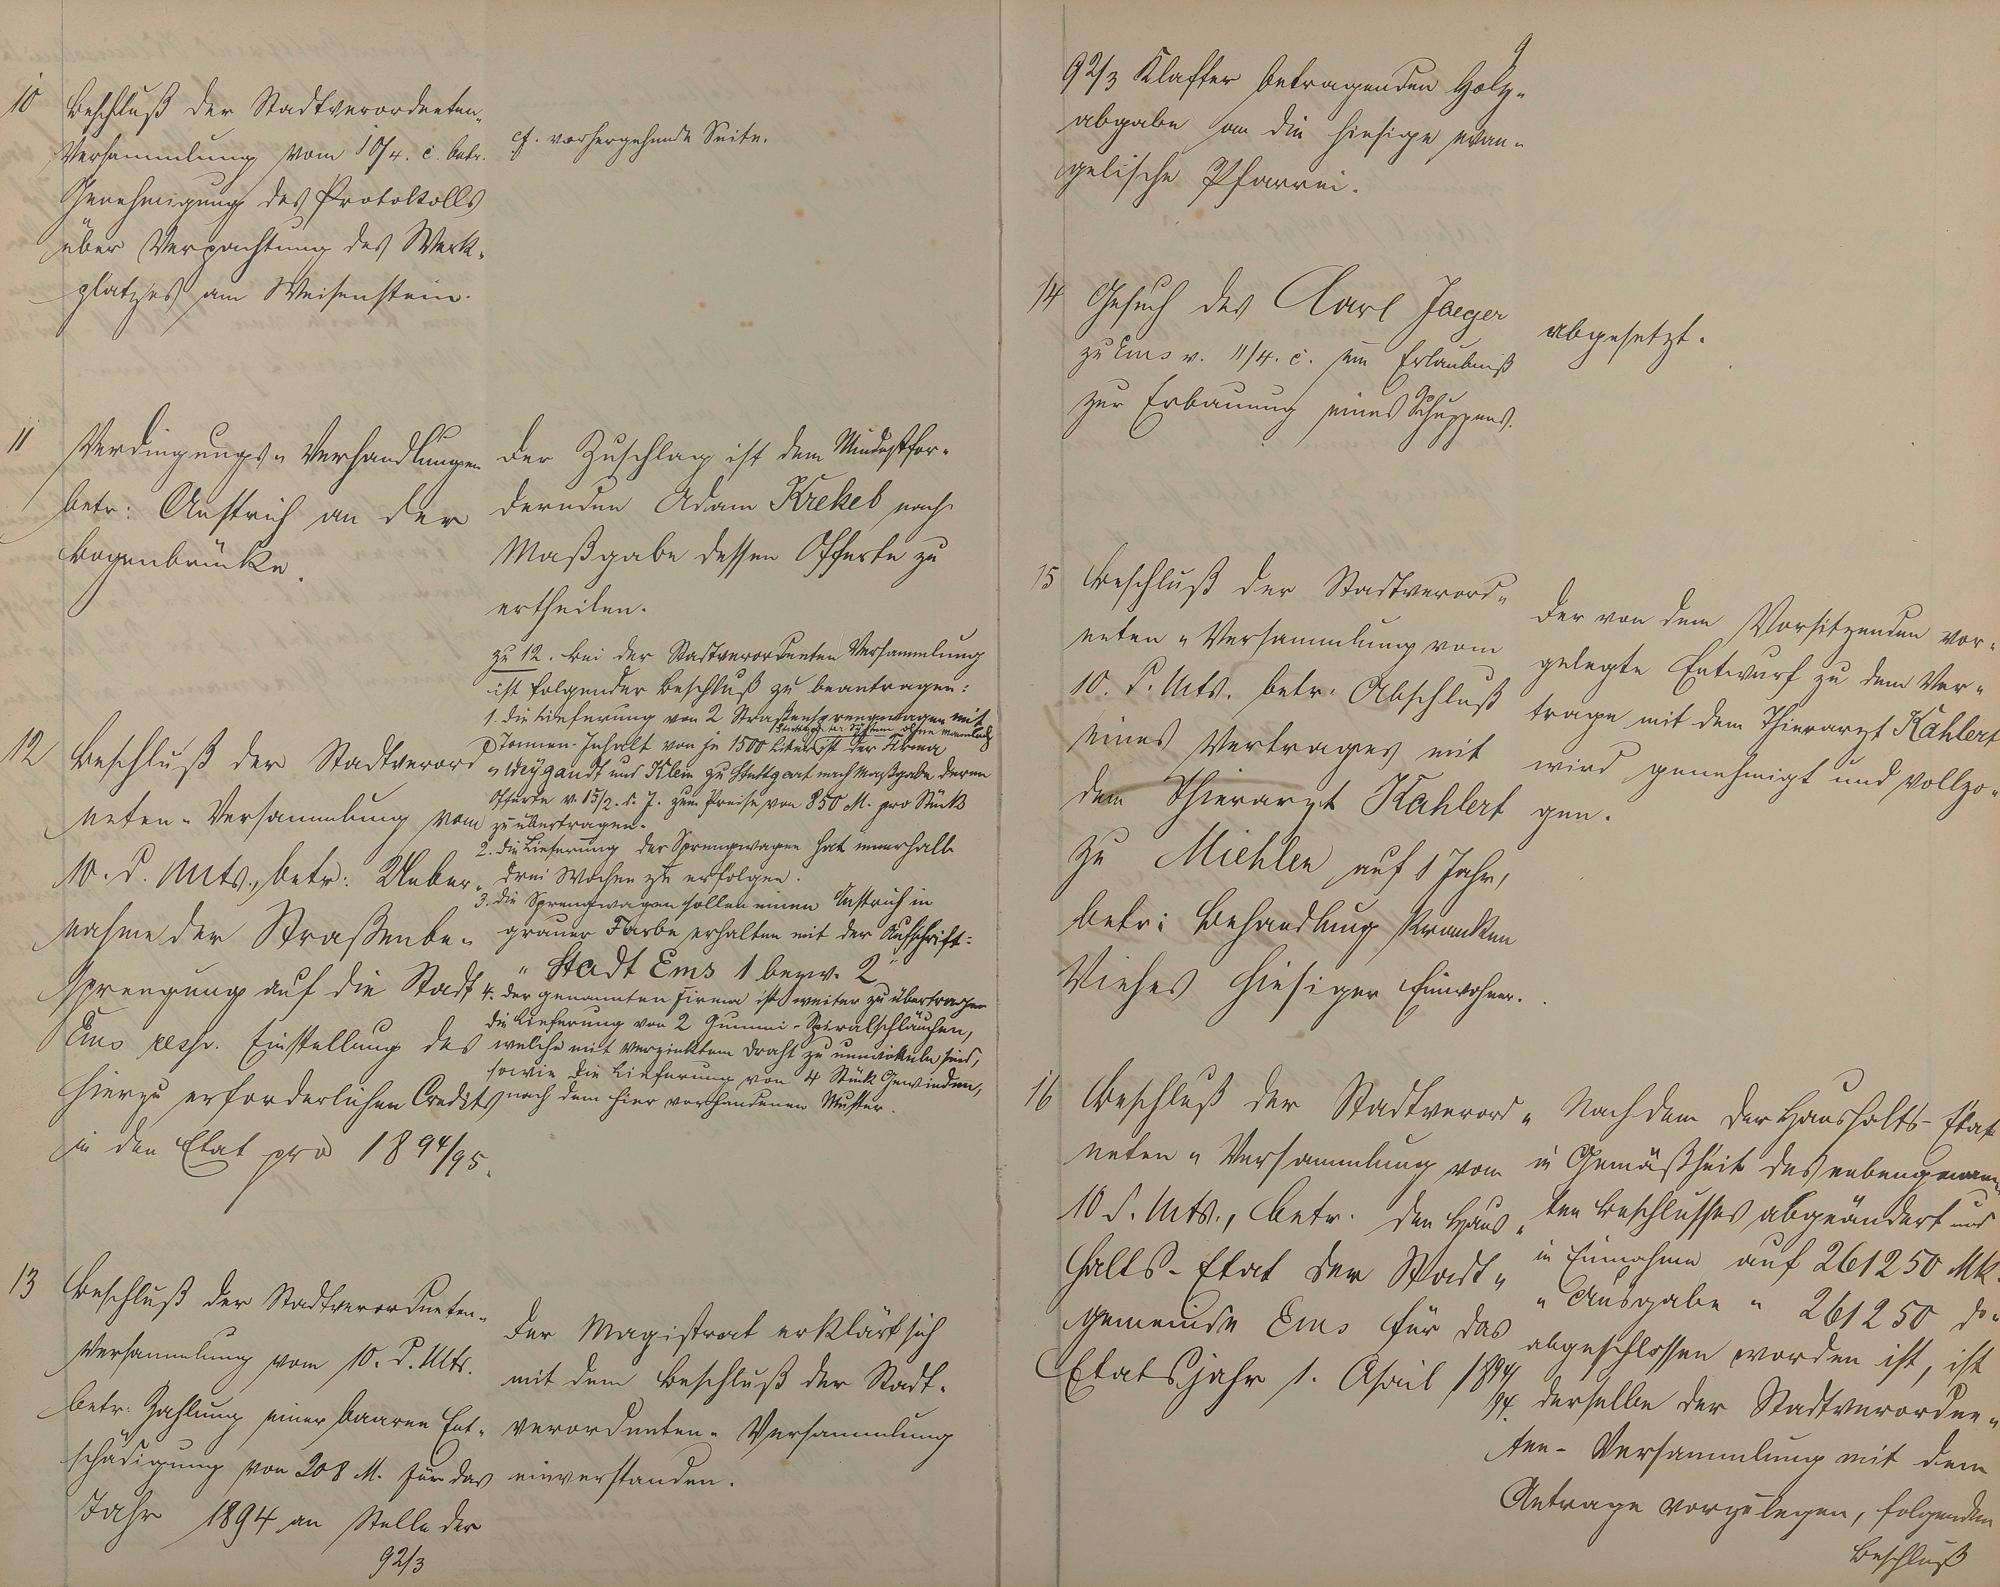 10 Beschluß der Stadtverordneten-
Versammlung vom 10/4. c. betr.
Genehmigung des Protokolls
über Verpachtung des Werk-
platzes am Weisenstein.
cf. vorhergehende Seite.
11 Verdingungs-Verhandlungen
betr: Anstrich an der
Bogenbrücke.
Der Zuschlag ist dem Mindestfor-
dernden Adam Krekel nach
Maßgabe dessen Offerte zu
ertheilen.
12 Beschluß der Stadtverord
neten-Versammlung vom
10. d. Mts., betr: Ueber-
nahme der Straßenbe-
sprengung auf die Stadt
Ems resp. Einstellung des
hierzu erforderlichen Credits
in den Etat pro 1894/95.
zu 12. Bei der Stadtverordneten Versammlung
ist folgender Beschluß zu beantragen:
1. Die Lieferung von 2 Straßensprengwagen mit
Tonnen-Inhalt von je 1500 Liter ist der Firma
Weygandt und Klein zu Stuttgart nach Maßgabe deren
Offerte v. 15/2. d. J. zum Preise von 850 M. pro Stück
zu übertragen.
2. Die Lieferung der Sprengwagen hat innerhalb
drei Wochen zu erfolgen.
3. Die Sprengwagen sollen einen Anstrich in
grauer Farbe erhalten mit der Aufschrift:
"Stadt Ems 1 bezw. 2"
4. Der genannten Firma ist weiter zu übertragen
die Lieferung von 2 Gummi-Spiralschläuchen,
welche mit verzinktem Draht zu umwickeln sind,
sowie die Lieferung von 4 Stück Gewinden,
nach dem hier vorhandenen Muster.
13 Beschluß der Stadtverordneten-
Versammlung vom 10. d. Mts.
betr: Zahlung einer baaren Ent-
schädigung von 208 M. für das
Jahr 1894 an Stelle der
92/3
Der Magistrat erklärt sich
mit dem Beschluß der Stadt-
verordneten-Versammlung
einverstanden.
9
92/3 Klafter betragenden Holz-
abgabe an die hiesige evan-
gelische Pfarrei.
14 Gesuch des Carl Jaeger
zu Ems v. 11/4. c. um Erlaubniß
zur Erbauung eines Schuppens.
abgesetzt.
15 Beschluß der Stadtverord-
neten-Versammlung vom
10. d. Mts. betr. Abschluß
eines Vertrages mit
dem Thierarzt Kahlert
zu Miehlen auf 1 Jahr,
betr: Behandlung kranken
Viehes hiesiger Einwohner.
Der von dem Vorsitzenden vor-
gelegte Entwurf zu dem Ver-
trage mit dem Thierarzt Kahlert
wird genehmigt und vollzo-
gen.
16 Beschluß der Stadtverord-
neten-Versammlung vom
10 d. Mts., betr. den Haus-
halts-Etat der Stadt-
gemeinde Ems für das
Etatsjahr 1. April 1894/
Nachdem der Haushalts-Etat
in Gemäßheit des nebengenann-
ten Beschlusses abgeändert und
in Einnahme auf 261250 Mk.
" Ausgabe " 261250 do.
abgeschlossen worden ist, ist
derselbe der Stadtverordne-
ten-Versammlung mit dem
Antrage vorzulegen, folgenden
Beschluß